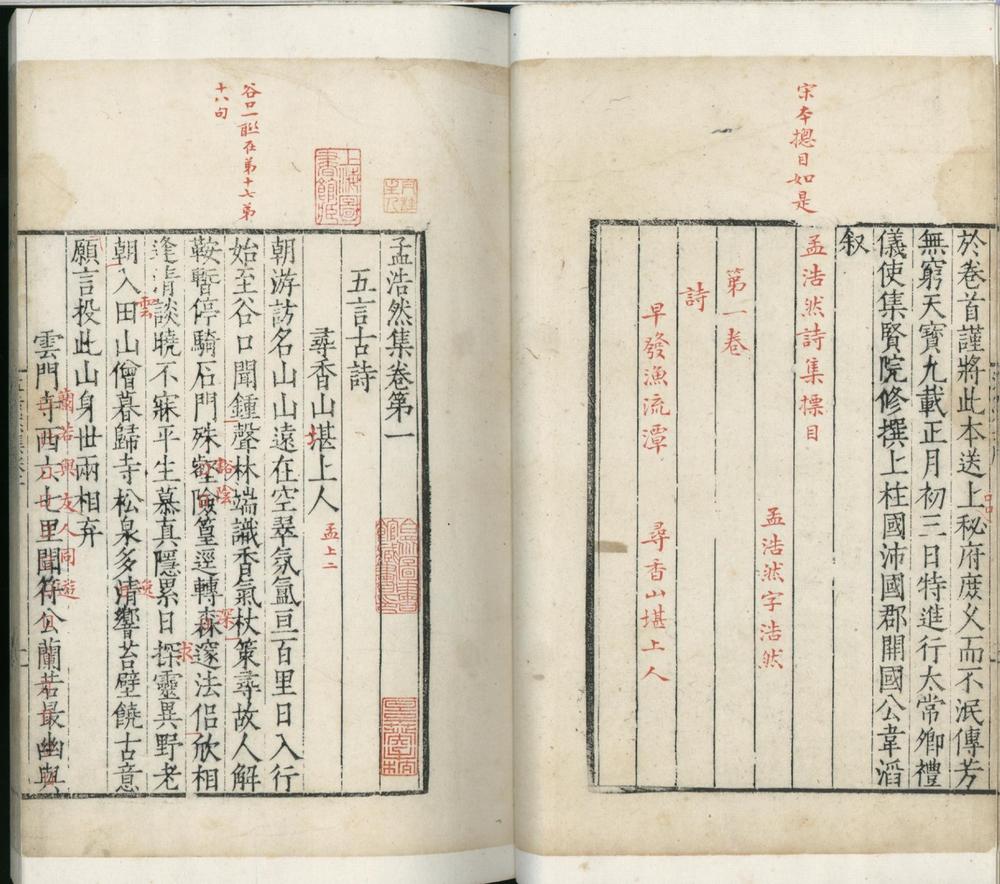 於卷首謹將此本送上秘府庶义而不泯傳芳
無窮天寶九載正月初三日特進行太常卿禮
儀使集賢院修撰上柱國沛國郡開國公韋滔
叙
宋本摠目如是
孟浩然詩集摽目
孟浩然字浩然
第一卷
詩
早發漁流潭
尋香山堪上人
孟浩然集卷第一
五言古詩
尋香山堪上人
孟上二
朝游訪名山山遠在空翠氛氳亘百里日入行
始至谷口聞鍾聲林端識香氣杖策尋故人解
谷口一聮在第十七第
十八句
鞍暫停騎石門殊壑險篁逕轉森邃法侶欣相
豁陰
深
逢清談曉不寐平生慕真隱累日探靈異野老
求
朝入田山僧暮歸寺松泉多清響苔壁饒古意
雲
逸
願言投此山身世兩相弃
雲門寺西六七里聞符公蘭若最幽與
蘭若與友人同遊
上海圖書館藏